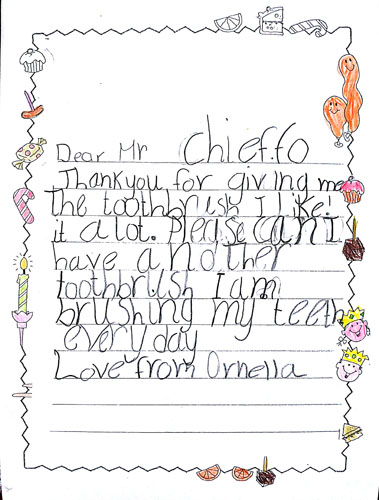 Dear Mr Chieffo
Thankyou for giving me
the toothbrush I like!
it a lot. Please can I
have another
toothbrush I am
brushing my teeth
every day
Love from Ornella